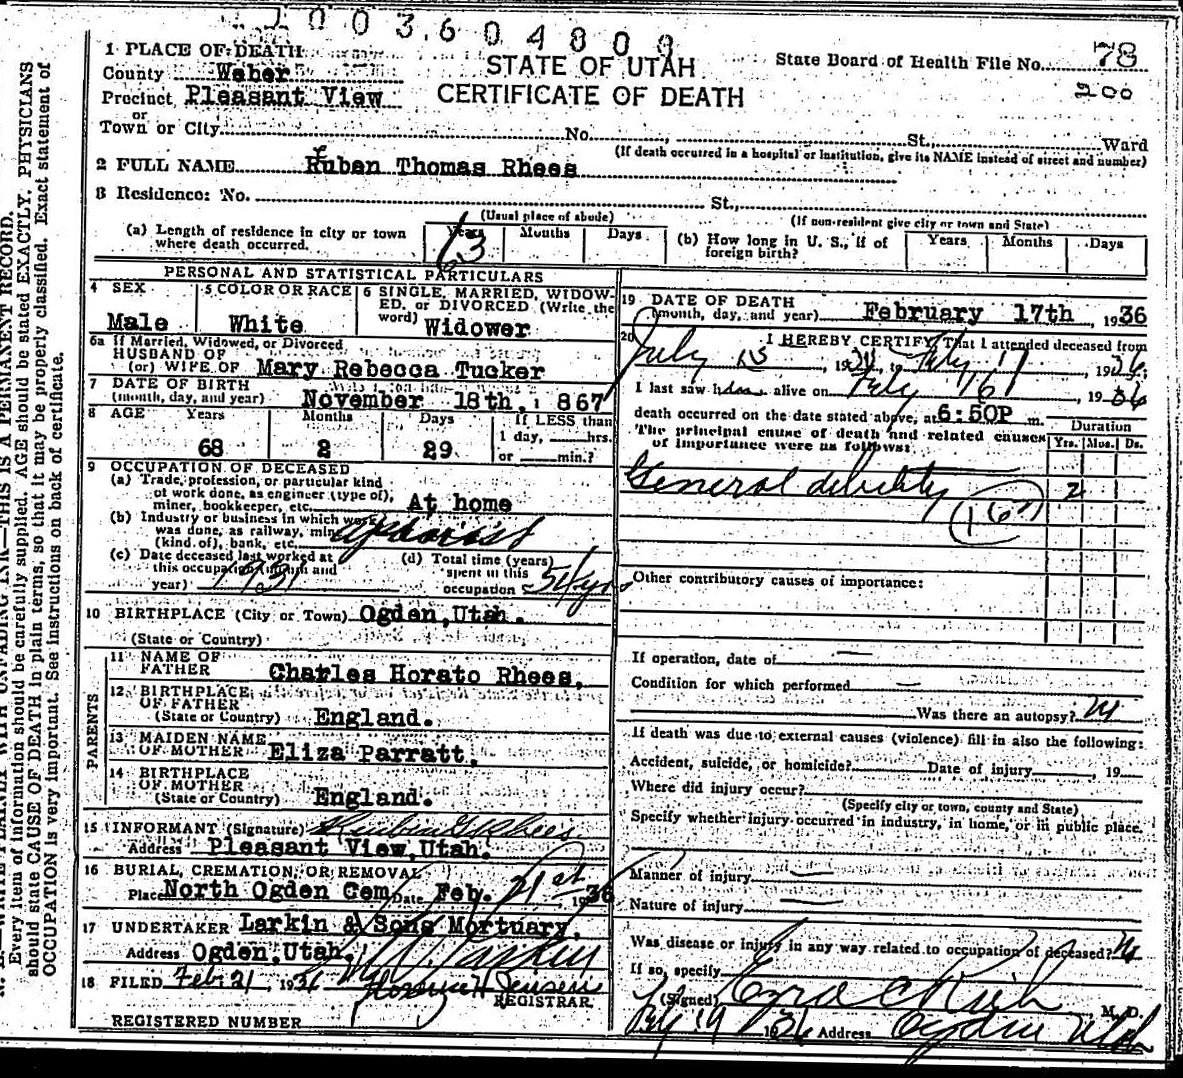 1003604808
1 PLACE OF DEATH
STATE OF UTAH
State Board of Health File No. 78
County Weber
CERTIFICATE OF DEATH
200
Precinct Pleasant View
or
Town or City No. St., Ward
(If death occurred in a hospital or institution, give its NAME instead of street and number)
2 FULL NAME Ruben Thomas Rhees
3 Residence: No. St.,
(Usual place of abode) (If non-resident give city or town and State)
(a) Length of residence in city or town where death occurred. 63 Years Months Days
(b) How long in U. S., if of foreign birth? Years Months Days
PERSONAL AND STATISTICAL PARTICULARS
4 SEX Male
5 COLOR OR RACE White
6 SINGLE, MARRIED, WIDOWED, or DIVORCED (Write the word) Widower
6a If Married, Widowed, or Divorced
HUSBAND OF
(or) WIFE OF Mary Rebecca Tucker
7 DATE OF BIRTH
(month, day, and year) November 18th, 1867
8 AGE Years Months Days If LESS than
68 2 29 1 day, hrs.
or min.?
9 OCCUPATION OF DECEASED
(a) Trade, profession, or particular kind
of work done, as engineer (type of),
miner, bookkeeper, etc. At home
(b) Industry or business in which work
was done, as railway, mine
(kind of), bank, etc.
(c) Date deceased last worked at
this occupation (month and
year) 1931
(d) Total time (years)
spent in this
occupation
10 BIRTHPLACE (City or Town) Ogden, Utah.
(State or Country)
PARENTS
11 NAME OF
FATHER Charles Horato Rhees,
12 BIRTHPLACE
OF FATHER
(State or Country) England.
13 MAIDEN NAME
OF MOTHER Eliza Parratt,
14 BIRTHPLACE
OF MOTHER
(State or Country) England.
15 INFORMANT (Signature) Reuben G Rhees
Address Pleasant View, Utah.
16 BURIAL, CREMATION, OR REMOVAL
Place North Ogden Cem. Date Feb. 21st 1936
17 UNDERTAKER Larkin & Sons Mortuary,
Address Ogden, Utah.
18 FILED Feb. 21, 1936 Jensen
REGISTRAR
REGISTERED NUMBER
19 DATE OF DEATH
(month, day, and year) February 17th, 1936
20 I HEREBY CERTIFY, That I attended deceased from
July 15, 1934, to Feby 17, 1936,
I last saw him alive on Feby 16, 1936
death occurred on the date stated above, at 6:50P m.
The principal cause of death and related causes
of importance were as follows:
Duration
Yrs. Mos. Ds.
General debility 2
(162)
Other contributory causes of importance:
If operation, date of
Condition for which performed
Was there an autopsy? N
If death was due to external causes (violence) fill in also the following:
Accident, suicide, or homicide? Date of injury , 19
Where did injury occur?
(Specify city or town, county and State)
Specify whether injury occurred in industry, in home, or in public place.
Manner of injury
Nature of injury
Was disease or injury in any way related to occupation of deceased? N
If so, specify
(Signed) Ezra C Rich, M. D.
Feby 19 1936 Address Ogden Utah
Every item of information should be carefully supplied. AGE should be stated EXACTLY. PHYSICIANS
should state CAUSE OF DEATH in plain terms, so that it may be properly classified. Exact statement of
OCCUPATION is very important. See instructions on back of certificate.